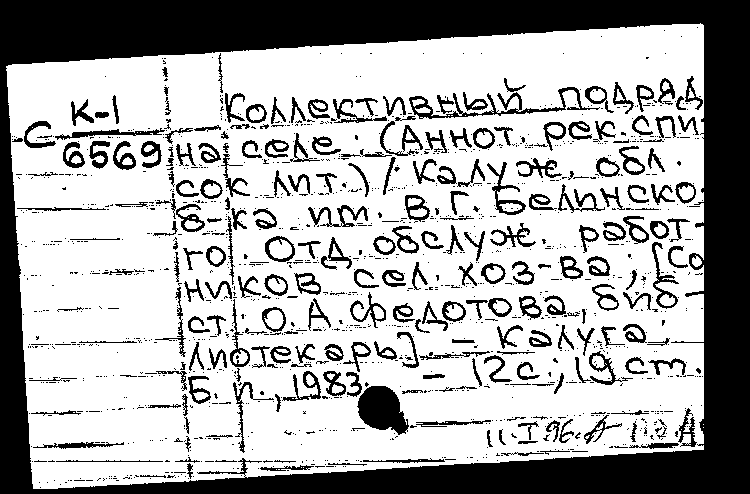 К-1
С 6569
Коллективный подряд
на селе: (Аннот. рек. спи-
сок лит.) / Калуж. обл.
б-ка им. В.Г. Белинско-
го. Отд. обслуж. работ-
ников сел. хоз-ва; [Со
ст.: О.А. Федотова, биб-
лиотекарь]. – Калуга:
Б. и., 1983. – 12 с.; 19 см.
11.I 96.